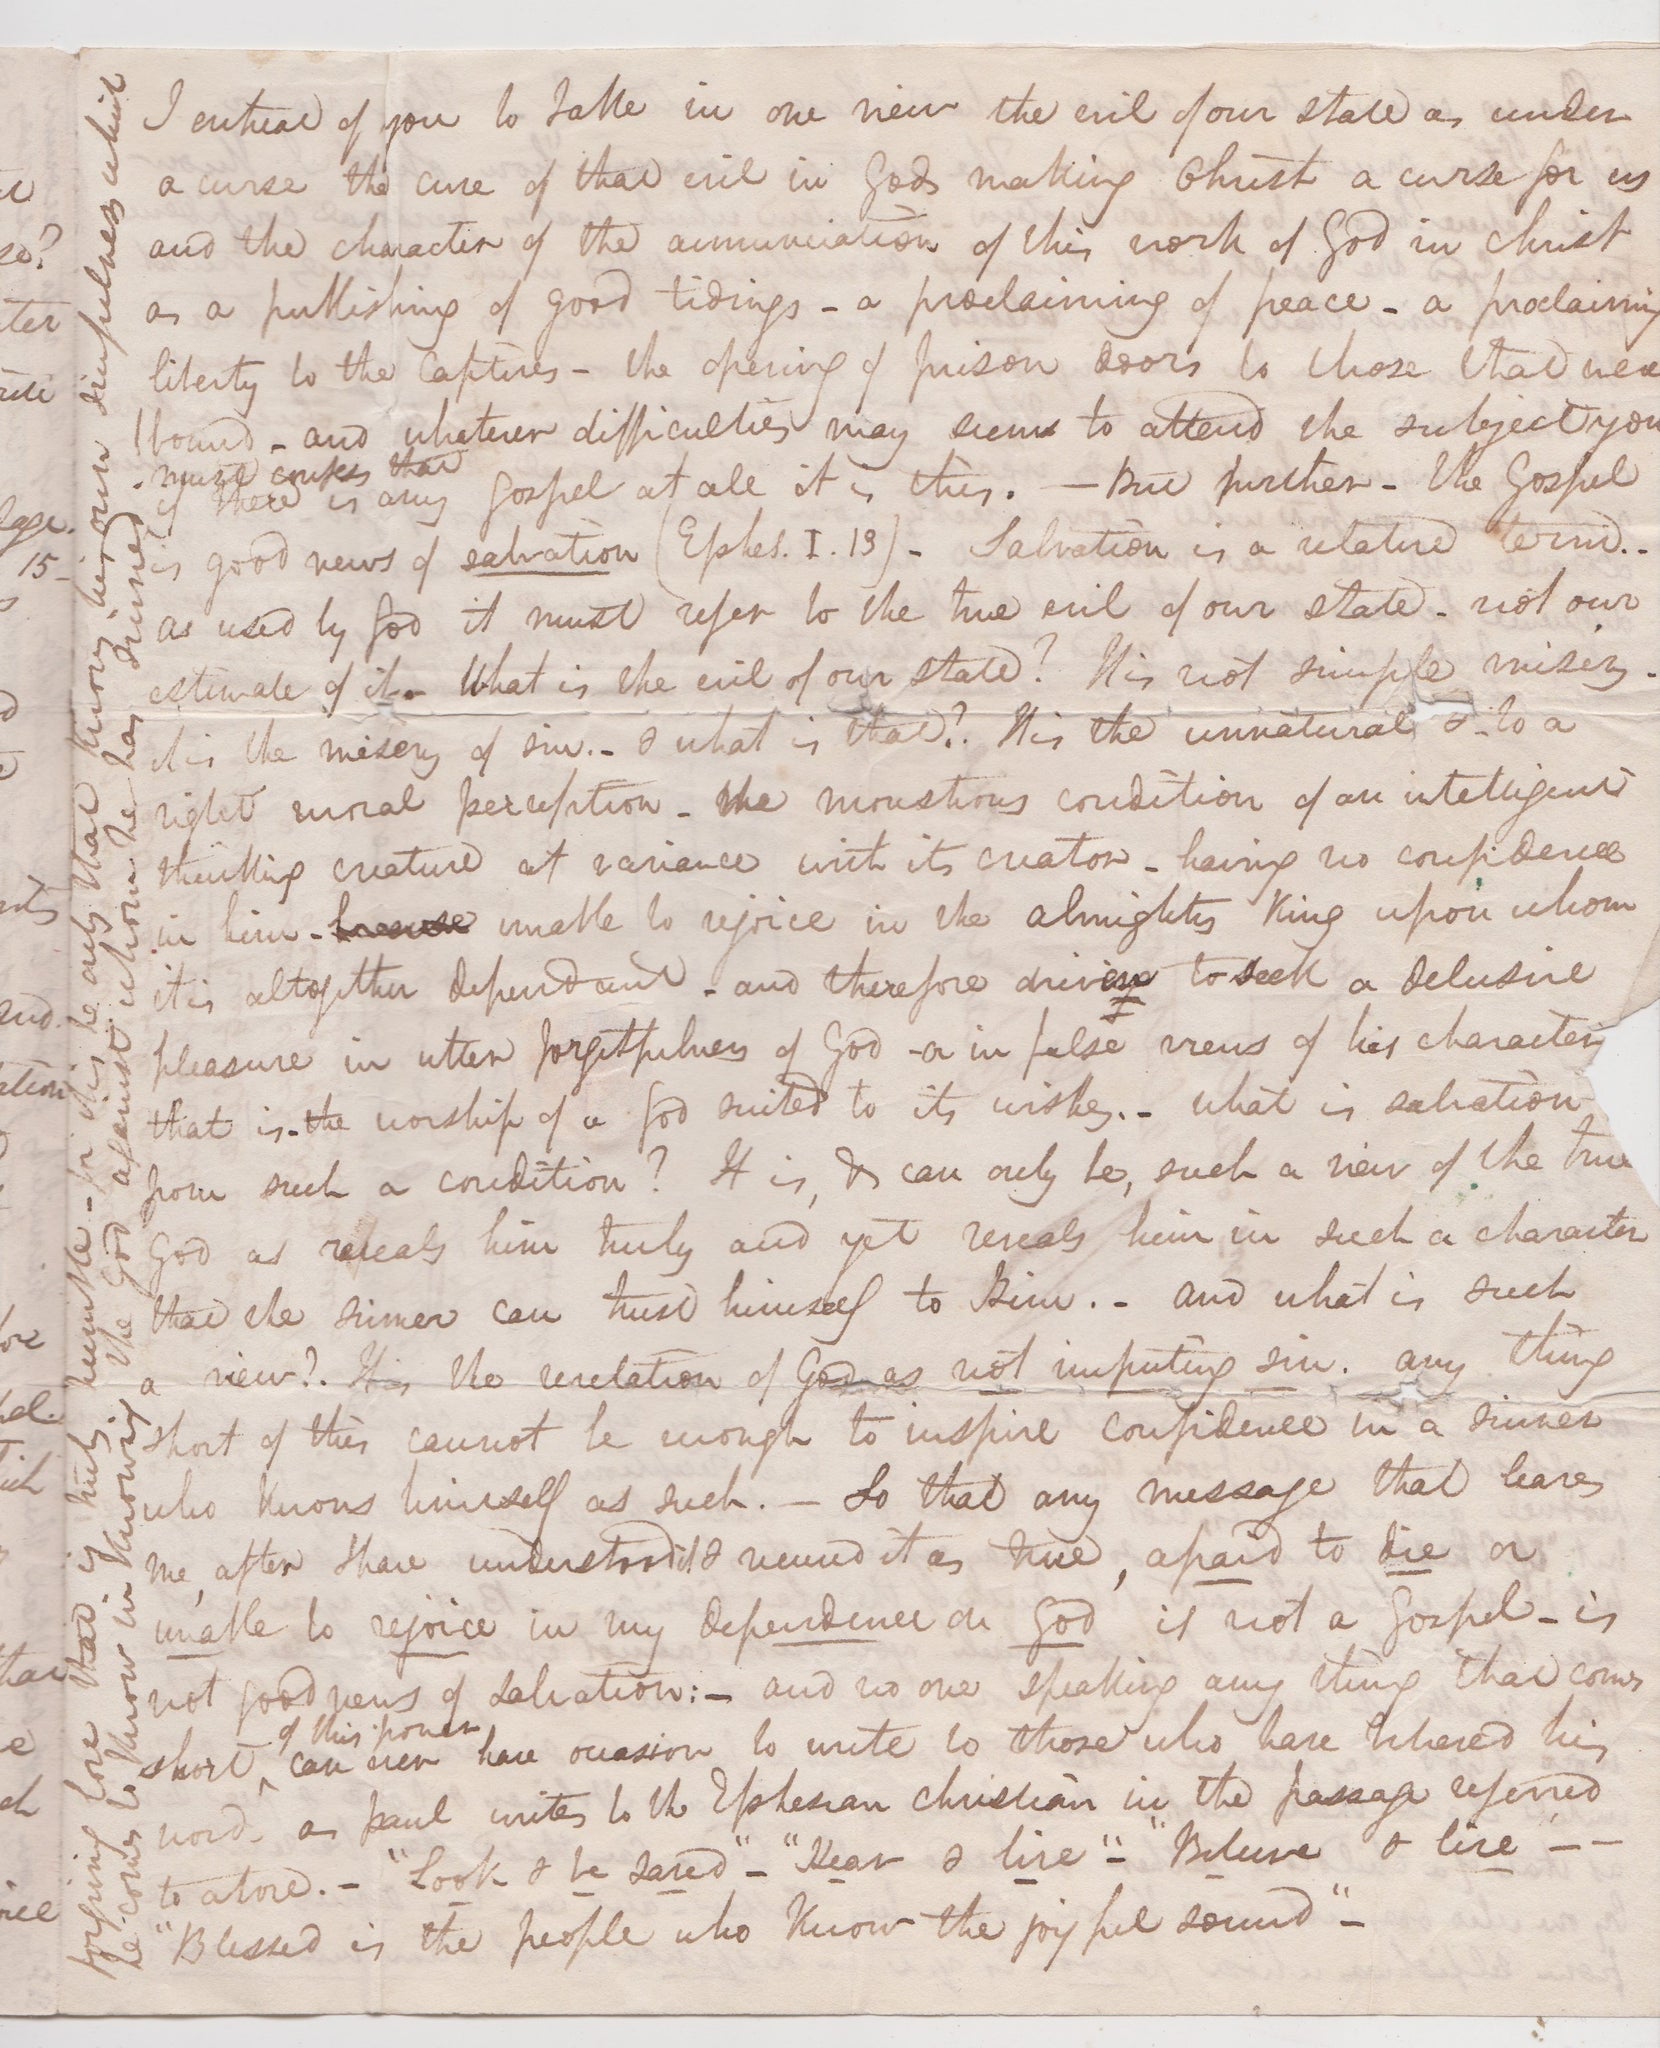 I entreat of you to take in one view the evil of our state as under
a curse the cure of that evil in Gods making Christ a curse for us
and the character of the annunciation of this work of God in Christ
as a publishing of good tidings - a proclaiming of peace - a proclaiming
liberty to the Captives - the opening of prison doors to those that were
bound - and whatever difficulties may seem to attend the subject you
must confess that
if there is any Gospel at all it is this. - But further - the Gospel
is good news of salvation (Ephes. I. 13) - Salvation is a relative term. -
as used by God it must refer to the true evil of our state - not our
estimate of it. - What is the evil of our state? It is not simple misery -
it is the misery of sin. - & what is that? It is the unnatural & to a
right moral perception - the monstrous condition of an intelligent
thinking creature at variance with its creator - having no confidence
in him - because unable to rejoice in the almighty King upon whom
it is altogether dependant - and therefore driving to seek a delusive
pleasure in utter forgetfulness of God - or in false views of his character
that is - the worship of a God suited to its wishes. - what is salvation
from such a condition? It is, & can only be, such a view of the true
God as reveals him truly and yet reveals him in such a character
that the sinner can trust himself to Him. - and what is such
a view? It is the revelation of God as not imputing sin. any thing
short of this cannot be enough to inspire confidence in a sinner
who knows himself as such. - So that any message that leaves
me, after I have understood it & received it as true, afraid to die or
unable to rejoice in my dependence on God is not a Gospel - is
not good news of salvation: - and no one speaking any thing that comes
of this power
short can ever have occasion to write to those who have believed his
word - as paul writes to the Ephesian christian in the passage referred
to above. - "Look & be saved" - "Hear & live" - "Believe & live" - -
"Blessed is the people who Know the joyful sound" -
forgiving love that is truly humble - for it is he only that knows his own sinfulness whil
he comes to Know in Knowing the God against whom he has sinned